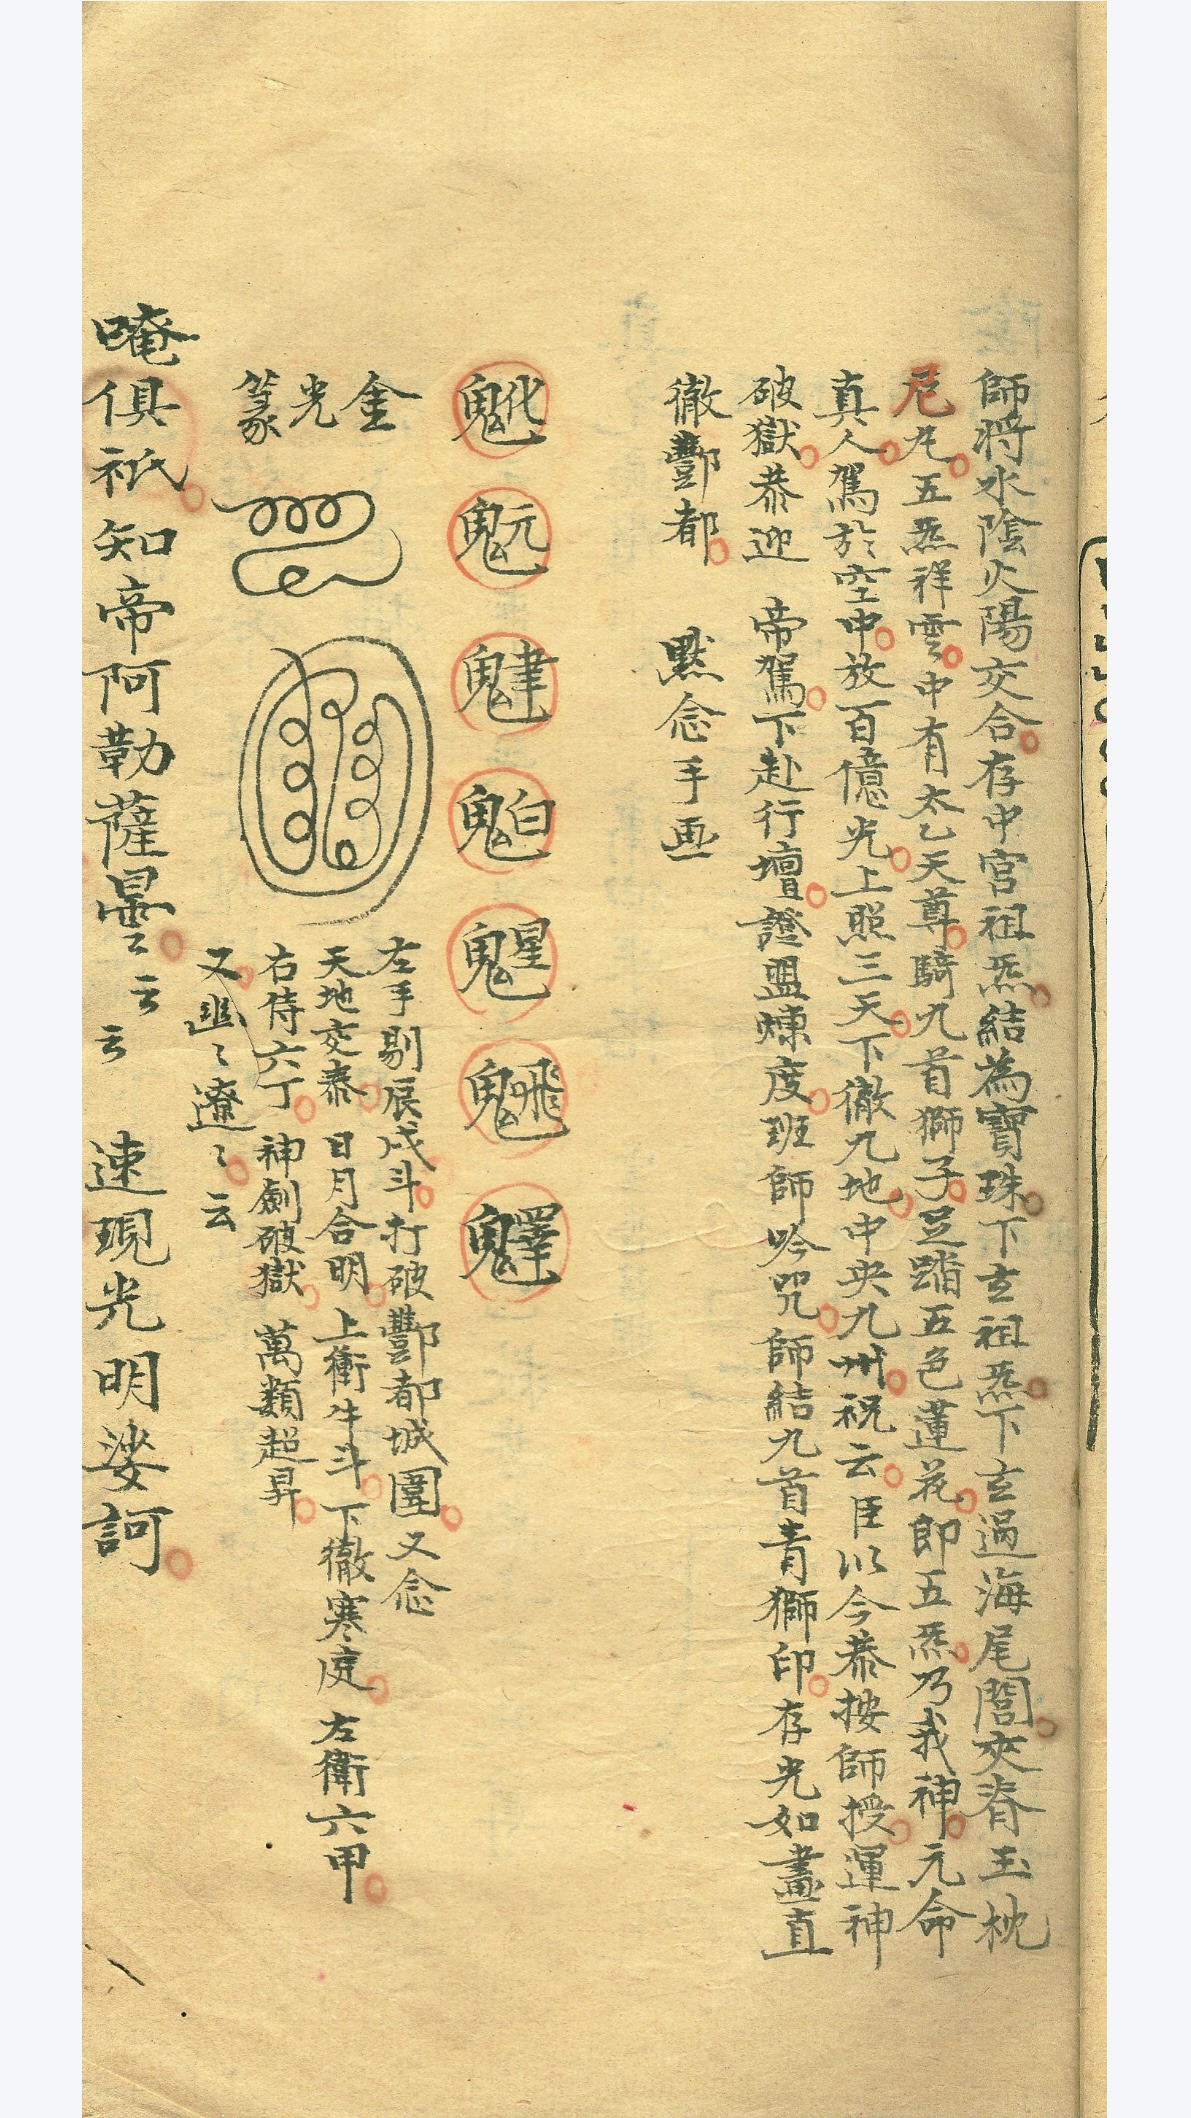 師將水陰火陽交合存中宮祖炁結為寶珠下玄祖炁下玄過海尾閭夾脊玉枕
尼丸五炁祥雲中有太乙天尊騎九首獅子足踏五色蓮花即五炁乃我神元命
真人駕於空中放百億光上照三天下徹九地中央九州祝云臣以今恭按師授運神
破獄恭迎 帝駕下赴行壇證盟煉度班師吟咒師結九首青獅印存光如晝直
徹酆都 默念手画
魖
左手剔辰戌斗打破酆都城圍又念
金光篆
天地交泰 日月合明 上衝牛斗 下徹寒庭 左衛六甲
右侍六丁 神劍破獄 萬類超昇
又幽々遼々云
唵俱祇知帝阿勒薩曇云云 速現光明娑訶